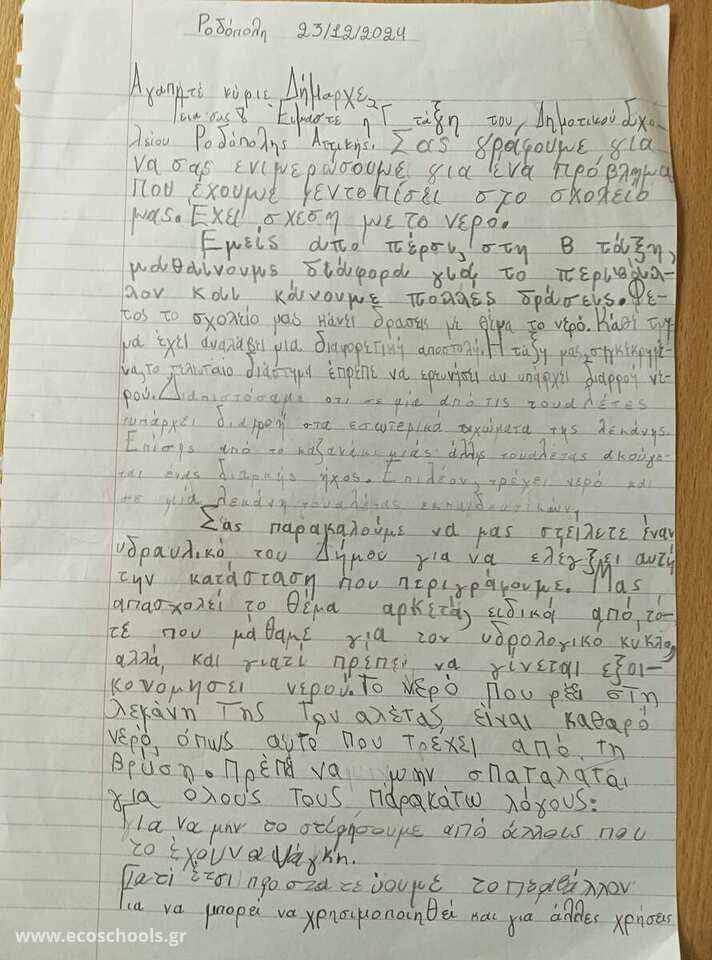 Ροδόπολη 23/12/2024
Αγαπητέ κύριε Δήμαρχε,
Γεια σας! Είμαστε η Γ τάξη του Δημοτικού Σχο-
λείου Ροδόπολης Αττικής. Σας γράφουμε για
να σας ενιμερώσουμε για ένα πρόβλημα
που έχουμε εντοπίσει στο σχολείο
μας. Έχει σχέση με το νερό.
Εμείς απο πέρσι, στη Β τάξη,
μαθαίνουμε διάφορα για το περιβάλ-
λον και κάνουμε πολλές δράσεις. Φέ-
τος το σχολείο μας κάνει δρασεις με θέμα το νερό. Κάθε τμή-
μα έχει αναλάβει μια διαφορετική αποστολή. Η τάξη μας, συγκεκριμέ-
να, το τελευταίο διάστημα έπρεπε να ερευνήσει αν υπάρχει διαρροή νε-
ρού. Διαπιστώσαμε οτι σε μία από τις τουαλέτες
υπάρχει διαρροή στα εσωτερικά τοιχώματα της λεκάνης.
Επίσης από το καζανάκι μιας άλλης τουαλέτας ακούγε-
ται ένας διαρκής ήχος. Επιπλέον, τρέχει νερό και
σε μιά λεκάνη τουαλέτας εκπαιδευτικών.
Σας παρακαλούμε να μας στείλετε έναν
υδραυλικό του Δήμου για να ελέγξει αυτή
την κατάσταση που περιγράφουμε. Μας
απασχολεί το θέμα αρκετά, ειδικά από τό-
τε που μάθαμε για τον υδρολογικό κυκλο,
αλλά και γιατί πρέπει να γίνεται εξοι-
κονομησει νερού. Το νερό που ρέει στη
λεκάνη της τουαλέτας είναι καθαρό
νερό, όπως αυτό που τρέχει από τη
βρύση. Πρέπει να μην σπαταλάται
για όλους τους παρακάτω λόγους:
Για να μην το στερήσουμε από άλλους που
το έχουν ανάγκη.
Γιατί έτσι προστατεύουμε το περιβάλλον
Για να μπορεί να χρησιμοποιηθεί και για άλλες χρήσεις
www.ecoschools.gr